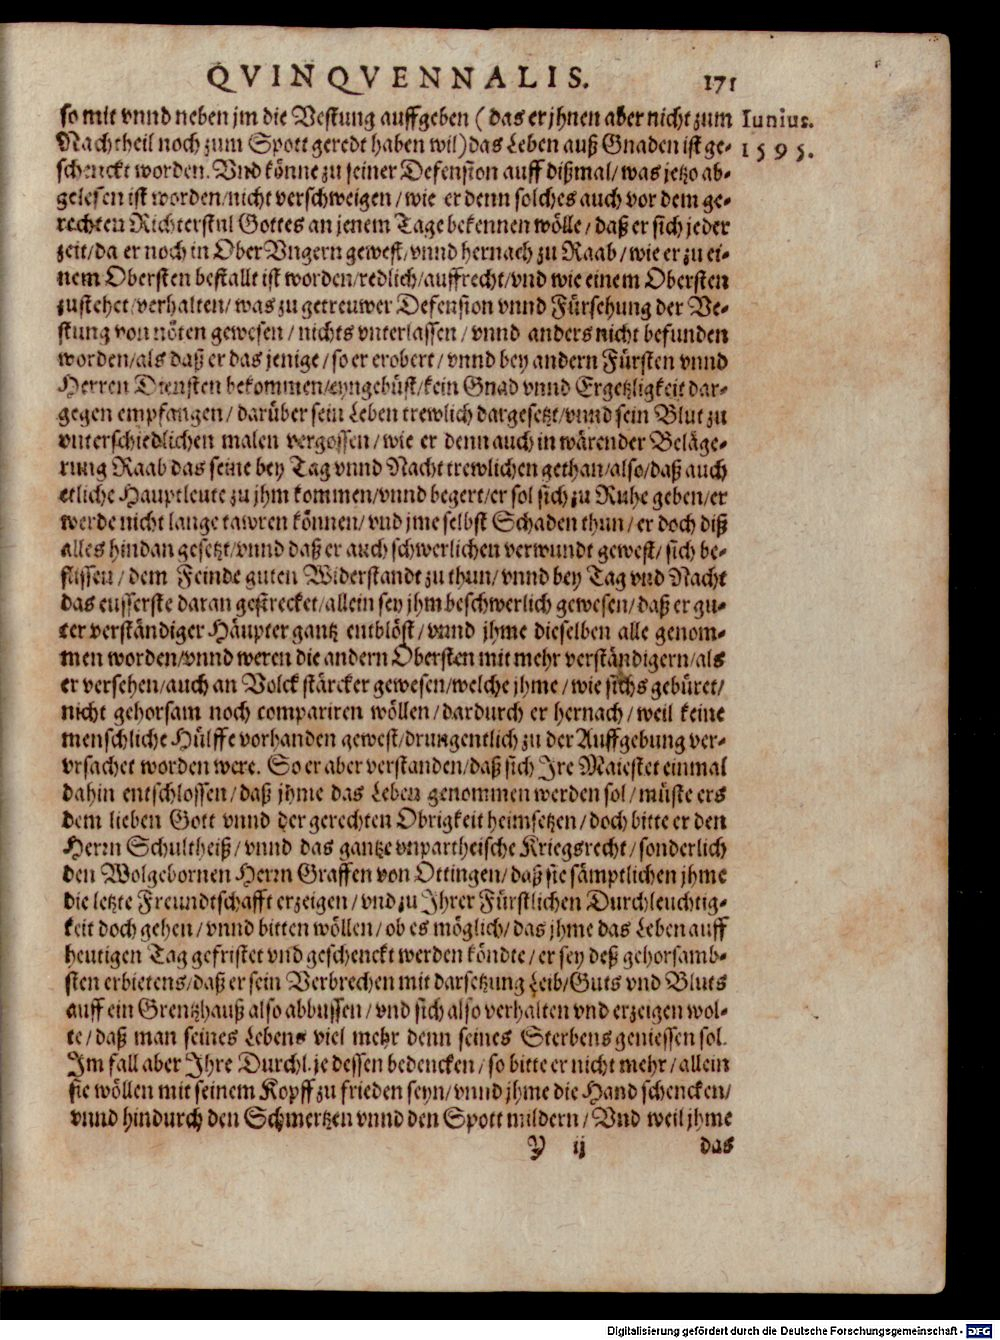 QVINQVENNALIS. 171
so mit vnnd neben jm die Vestung auffgeben (das er jhnen aber nicht zum Iunius.
Nachtheil noch zum Spott geredt haben wil) das Leben auß Gnaden ist ge- 1595.
schenckt worden. Vnd könne zu seiner Defension auff dißmal/ was jetzo ab-
gelesen ist worden/ nicht verschweigen/ wie er denn solches auch vor dem ge-
rechten Richterstul Gottes an jenem Tage bekennen wölle/ daß er sich jeder
zeit/ da er noch in Ober Vngern gewest/ vnnd hernach zu Raab/ wie er zu ei-
nem Obersten bestallt ist worden/ redlich/ auffrecht/ vnd wie einem Obersten
zustehet/ verhalten/ was zu getreuwer Defension vnnd Fürsehung der Ve-
stung von nöten gewesen/ nichts vnterlassen/ vnnd anders nicht befunden
worden/ als daß er das jenige/ so er erobert/ vnnd bey andern Fürsten vnnd
Herren Diensten bekommen/ eyngebüst/ kein Gnad vnnd Ergetzligkeit dar-
gegen empfangen/ darüber sein Leben trewlich dargesetzt/ vnnd sein Blut zu
vnterschiedlichen malen vergossen/ wie er denn auch in wärender Beläge-
rung Raab das seine bey Tag vnnd Nacht trewlichen gethan/ also/ daß auch
etliche Hauptleute zu jhm kommen/ vnnd begert/ er sol sich zu Ruhe geben/ er
werde nicht lange tawren können/ vnd jme selbst Schaden thun/ er doch diß
alles hindan gesetzt/ vnnd daß er auch schwerlichen verwundt gewest/ sich be-
flissen/ dem Feinde guten Widerstandt zu thun/ vnnd bey Tag vnd Nacht
das eusserste daran gestrecket/ allein sey jhm beschwerlich gewesen/ daß er gu-
ter verständiger Häupter gantz entblöst/ vnnd jhme dieselben alle genom-
men worden/ vnnd weren die andern Obersten mit mehr verständigern/ als
er versehen/ auch an Volck stärcker gewesen/ welche jhme/ wie sichs gebüret/
nicht gehorsam noch compariren wöllen/ dardurch er hernach/ weil keine
menschliche Hülffe vorhanden gewest/ drungentlich zu der Auffgebung ver-
vrsachet worden were. So er aber verstanden/ daß sich Ire Maiestet einmal
dahin entschlossen/ daß jhme das Leben genommen werden sol/ müste ers
dem lieben Gott vnnd der gerechten Obrigkeit heimsetzen/ doch bitte er den
Herrn Schultheiß/ vnnd das gantze vnpartheische Kriegsrecht/ sonderlich
den Wolgebornen Herrn Graffen von Ottingen/ daß sie sämptlichen jhme
die letzte Freundtschafft erzeigen/ vnd zu Ihrer Fürstlichen Durchleuchtig-
keit doch gehen/ vnnd bitten wöllen/ ob es möglich/ das jhme das Leben auff
heutigen Tag gefristet vnd geschenckt werden köndte/ er sey deß gehorsamb-
sten erbietens/ daß er sein Verbrechen mit darsetzung Leib/ Guts vnd Bluts
auff ein Grentzhauß also abbussen/ vnd sich also verhalten vnd erzeigen wol-
te/ daß man seines Lebens viel mehr denn seines Sterbens geniessen sol.
Im fall aber Ihre Durchl. je dessen bedencken/ so bitte er nicht mehr/ allein
sie wöllen mit seinem Kopff zu frieden seyn/ vnnd jhme die Hand schencken/
vnnd hindurch den Schmertzen vnnd den Spott mildern/ Vnd weil jhme
Y ij das
Digitalisierung gefördert durch die Deutsche Forschungsgemeinschaft - DFG